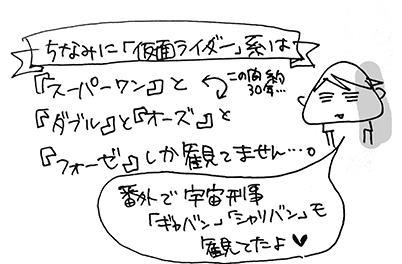 ちなみに「仮面ライダー」系は
『スーパーワン』と
この間約
30年…
『ダブル』と『オーズ』と
『フォーゼ』しか観てません…。
番外で宇宙刑事
「ギャバン」「シャリバン」も
観てたよ♥